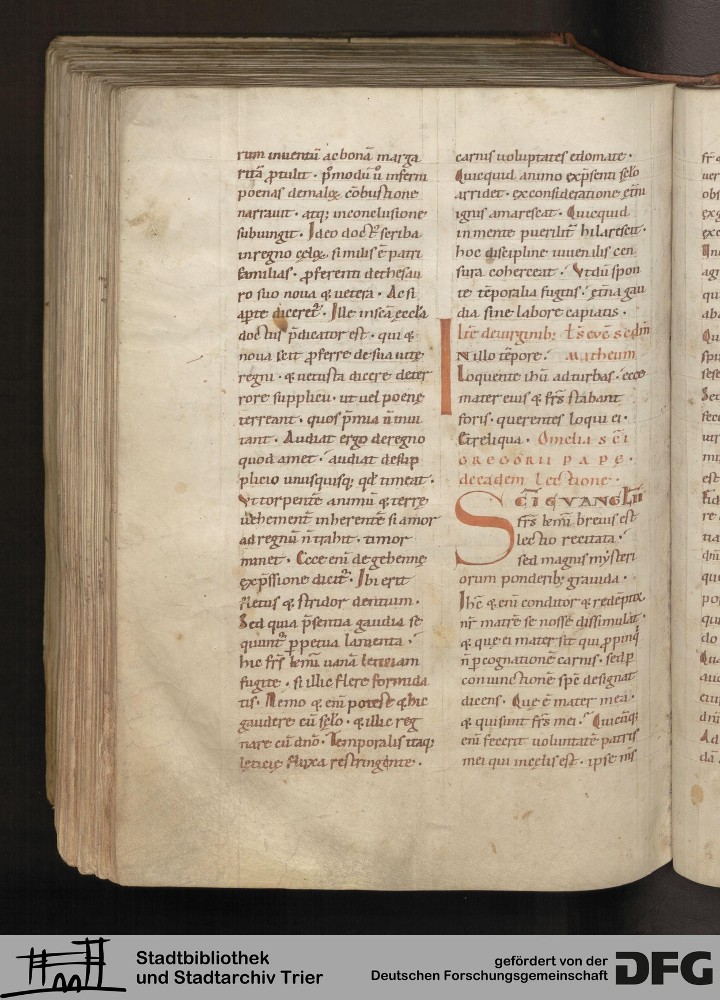 rum inuentū ac bonā marga
ritā ꝑtulit · p̄modū ũ inferni
poenas de maloꝝ cōbustione
narrauit · atq; in conclusione
subiungit · Ideo doct᷒ scriba
in regno cęloꝝ similis ē patri
familias · ꝓferenti de thesau
ro suo noua & uetera · Ac si
aꝑte diceret᷒ · Ille in scā ęccła
doctus p̄dicator est · qui &
noua scit ꝓferre de suauitate
regni · & uetusta dicere de ter
rore supplicii · ut uel poenę
terreant · quos p̄mia n̄ inui
tant · Audiat ergo de regno
quod amet · audiat de sup
plicio unusquisq; qd timeat ·
Vt torpentē animū & terrę
uehement̄ inherentē si amor
ad regnū n̄ trahit · timor
minet · Ecce eni de gehennę
exp̄ssione dicit᷒ · Ibi erit
fletus & stridor dentium ·
Sed quia p̄sentia gaudia se
quunt᷒ ꝑpetua lamenta ·
hic fr̄s kmi uanā leticiam
fugite · si illic flere formida
tis · Nemo & eni potest & hic
gaudere cū sc̄lo · & illic reg
nare cū dn̄o · Temporalis itaq;
leticię fluxa restringite ·
carnis uoluptates edomate ·
Quicquid animo ex p̄senti sc̄lo
arridet · ex consideratione ęt̄ni
ignis amarescat · Quicquid
in mente puerilit̄ hilarescit ·
hoc disciplinę iuuenilis cen
sura coherceat · Vt dū spon
te tēporalia fugitis · ęt̄na gau
dia sine labore capiatis ·
Itē de uirginib; · sc̄dm
N illo tēpore · Matheum
Loquente ih̄u ad turbas · ecce
mater eius & fr̄s stabant
foris · querentes loqui ei ·
Et reliqua · Omelia sc̄i
GREGORII PAPĘ ·
de eadem Lectione ·
SC̄I EVANGLII
fr̄s kmi breuis est
lectio recitata ·
sed magnis mysteri
orum ponderib; grauida ·
Ih̄c & eni conditor & redēptor
nr̄ matrē se nosse dissimulat ·
& que ei mater sit qui ꝓpinq̇
n̄ ꝑ cognationē carnis · sed ꝑ
coniunctionē sp̄c designat
dicens · Que ē mater mea ·
& qui sunt fr̄s mei · Quicūq;
eni fecerit uoluntatē patris
mei qui in cęlis est · ipse m̄s
Stadtbibliothek
und Stadtarchiv Trier
gefördert von der
Deutschen Forschungsgemeinschaft
DFG